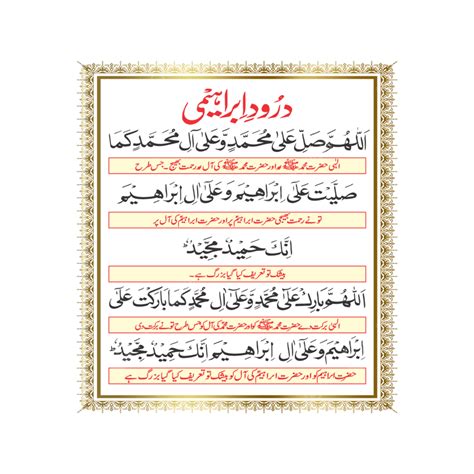 درود ابراہیمی
اَللّٰهُمَّ صَلِّ عَلٰی مُحَمَّدٍ وَّعَلٰٓی اٰلِ مُحَمَّدٍ كَمَا
الٰہی حضرت محمد ﷺ اور حضرت محمد ﷺ کی آل پر رحمت بھیج۔ جس طرح
صَلَّیْتَ عَلٰٓی اِبْرَاهِیْمَ وَعَلٰٓی اٰلِ اِبْرَاهِیْمَ
تو نے رحمت بھیجی حضرت ابراہیمؑ پر اور حضرت ابراہیمؑ کی آل پر
اِنَّكَ حَمِیْدٌ مَّجِیْدٌ
بیشک تو تعریف کیا گیا بزرگ ہے۔
اَللّٰهُمَّ بَارِكْ عَلٰی مُحَمَّدٍ وَّعَلٰٓی اٰلِ مُحَمَّدٍ كَمَا بَارَكْتَ عَلٰٓی
الٰہی برکت دے حضرت محمد ﷺ کو اور حضرت محمدؐ کی آل کو جس طرح تو نے برکت دی
اِبْرَاهِیْمَ وَعَلٰٓی اٰلِ اِبْرَاهِیْمَ اِنَّكَ حَمِیْدٌ مَّجِیْدٌ
حضرت ابراہیمؑ کو اور حضرت ابراہیمؑ کی آل کو بیشک تو تعریف کیا گیا بزرگ ہے